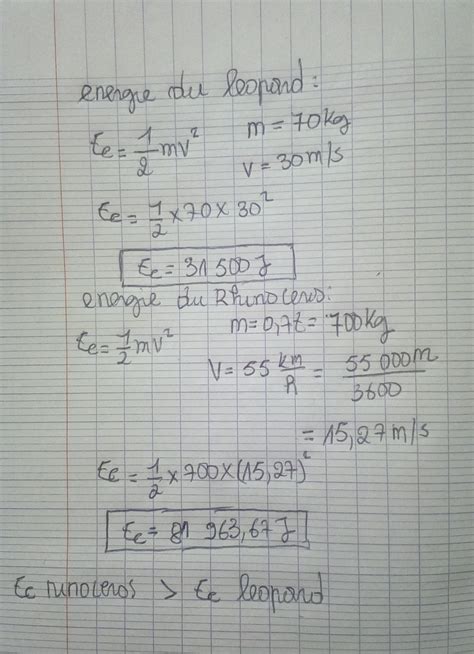 energie du leopard :
Ec = 1/2 mv² m = 70kg
v = 30m/s
Ec = 1/2 x 70 x 30²
Ec = 31 500 J
energie du Rhinoceros :
Ec = 1/2 mv² m = 0,7t = 700kg
V = 55 km/h = 55 000m/3600
= 15,27 m/s
Ec = 1/2 x 700 x (15,27)²
Ec = 81 963,67 J
Ec runoceros > Ec leopard